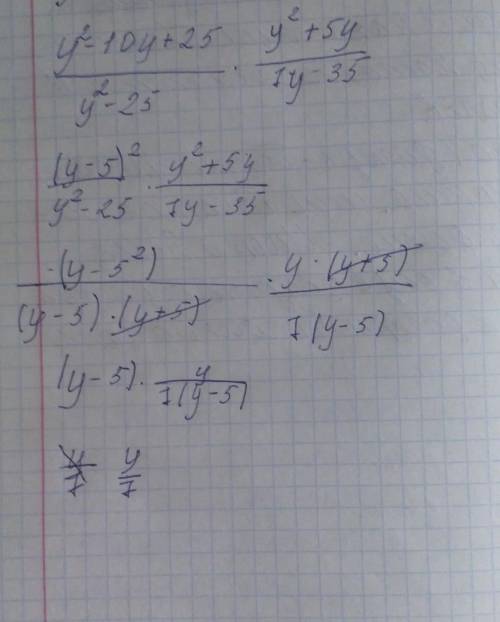 y² - 10y + 25 / y² - 25 · y² + 5y / 7y - 35
(y - 5)² / y² - 25 · y² + 5y / 7y - 35
-(y - 5²) / (y - 5) · (y + 5) · y · (y + 5) / 7(y - 5)
(y - 5) · y / 7(y - 5)
y / 7 y / 7